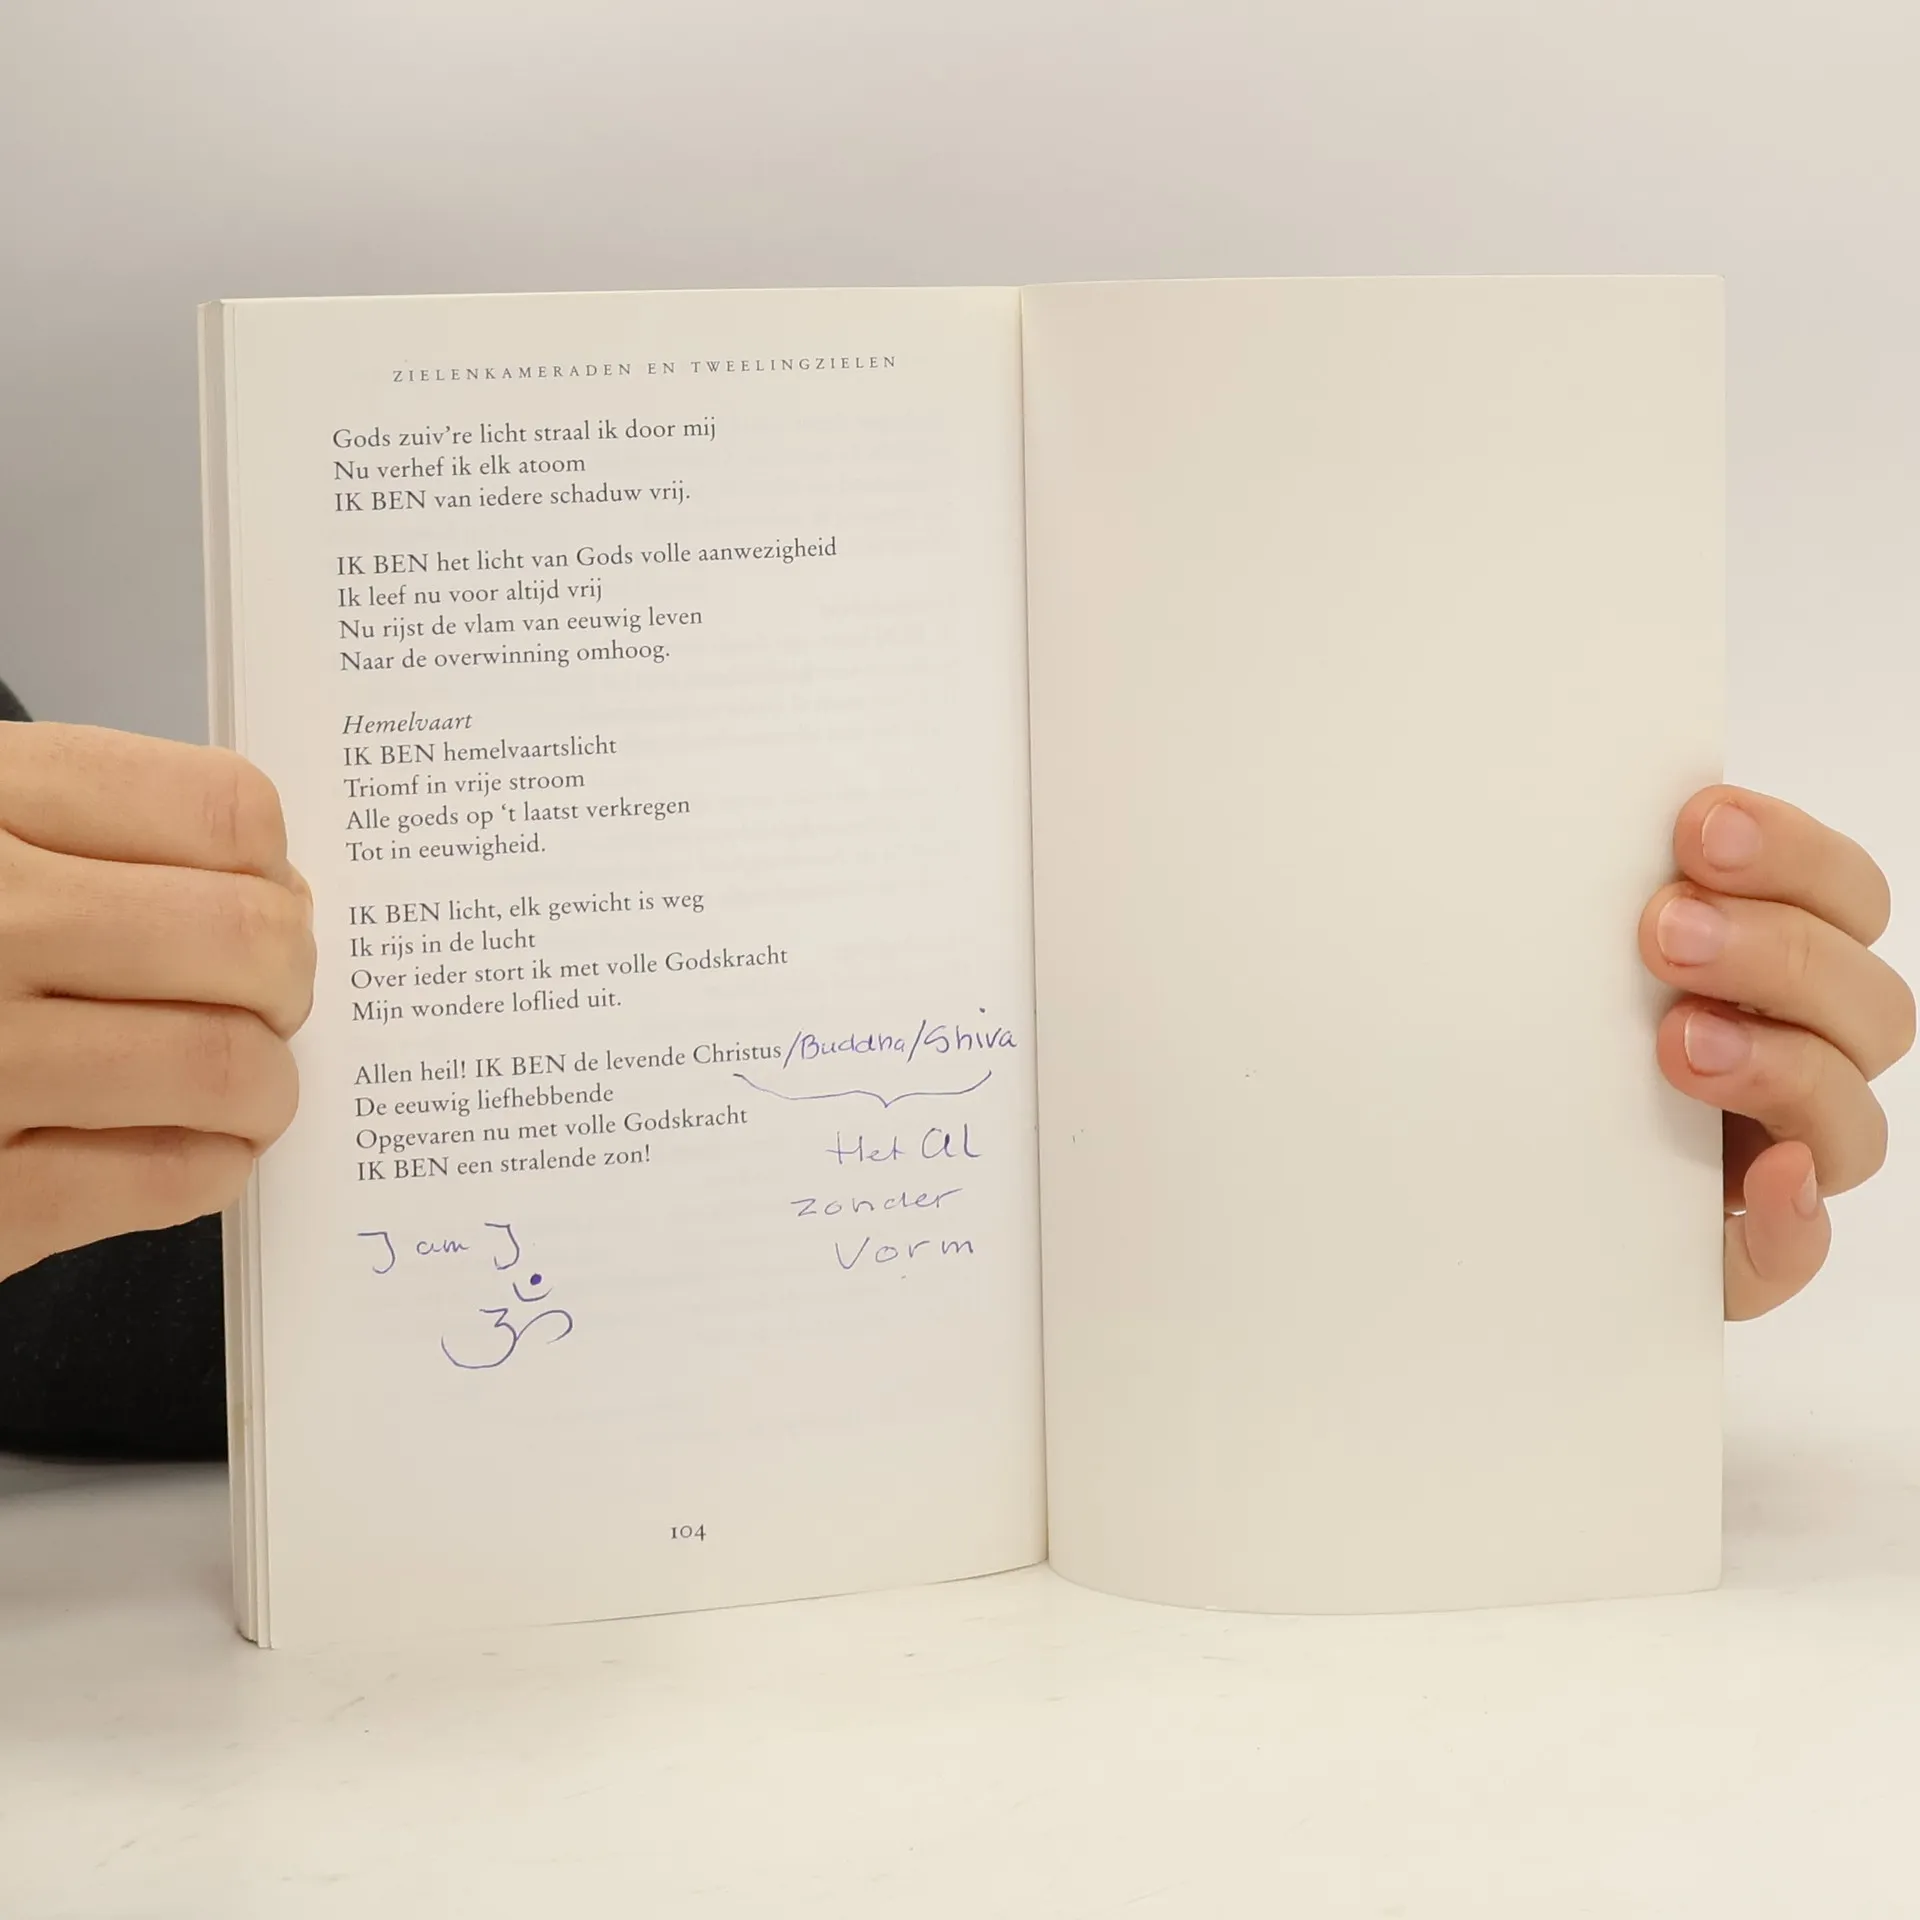 ZIELENKAMERADEN EN TWEELINGZIELEN
Gods zuiv're licht straal ik door mij
Nu verhef ik elk atoom
IK BEN van iedere schaduw vrij.
IK BEN het licht van Gods volle aanwezigheid
Ik leef nu voor altijd vrij
Nu rijst de vlam van eeuwig leven
Naar de overwinning omhoog.
Hemelvaart
IK BEN hemelvaartslicht
Triomf in vrije stroom
Alle goeds op 't laatst verkregen
Tot in eeuwigheid.
IK BEN licht, elk gewicht is weg
Ik rijs in de lucht
Over ieder stort ik met volle Godskracht
Mijn wondere loflied uit.
Allen heil! IK BEN de levende Christus/Buddha/Shiva
De eeuwig liefhebbende
Opgevaren nu met volle Godskracht
IK BEN een stralende zon!
Het al
zonder
Vorm
I am I
ॐ
104